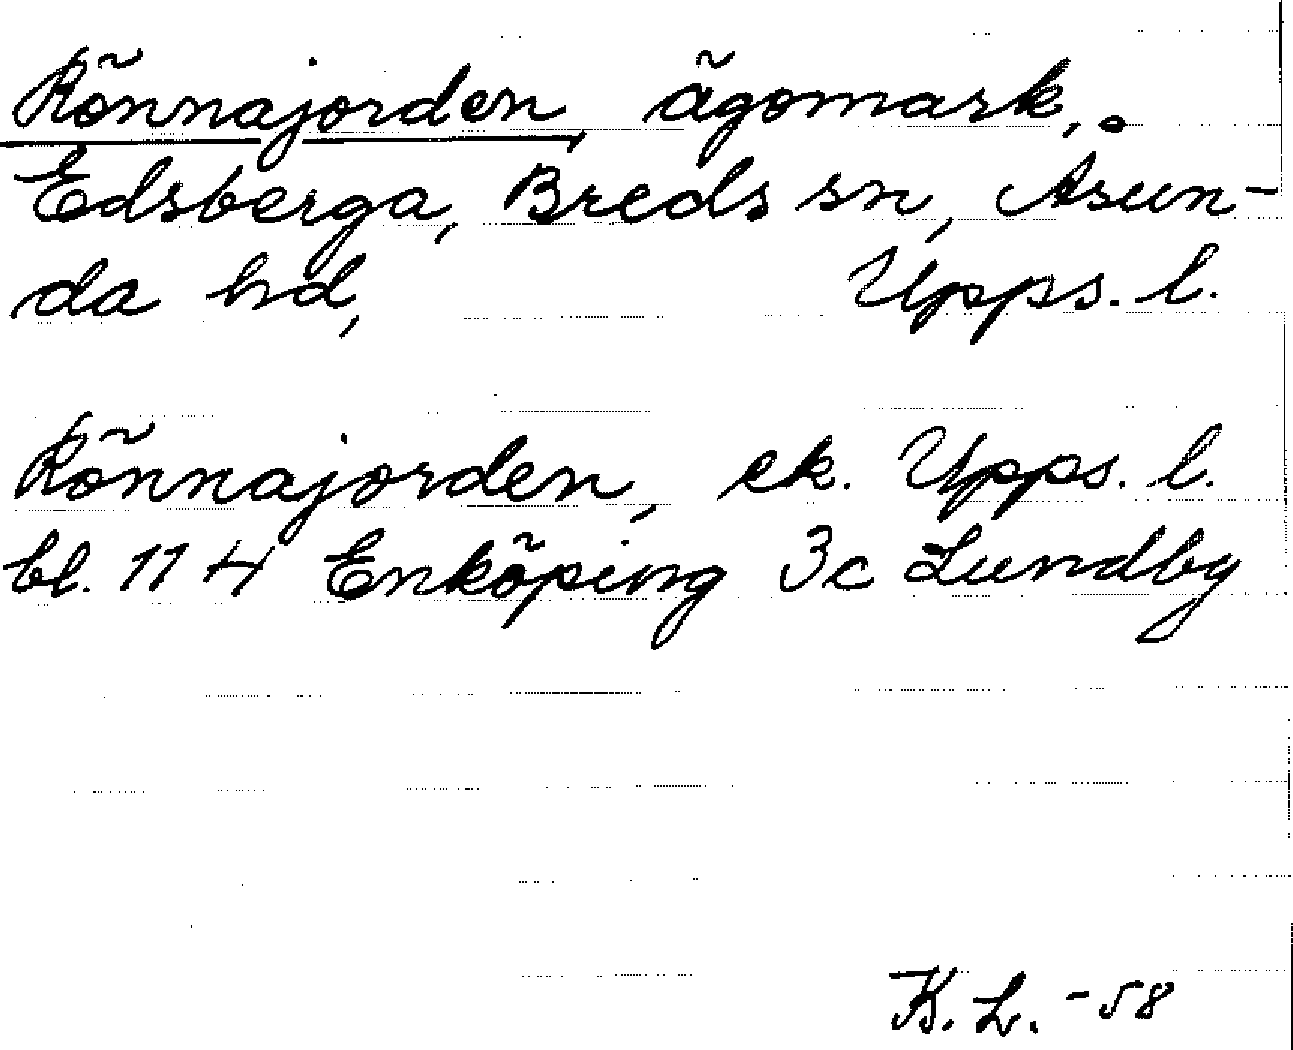 Rönnajorden, ägomark,
Edsberga, Breds sn, Asun-
da hd, Upps. l.
Rönnajorden, ek. Upps. l.
bl. 114 Enköping 3c Lundby
K. L. -58